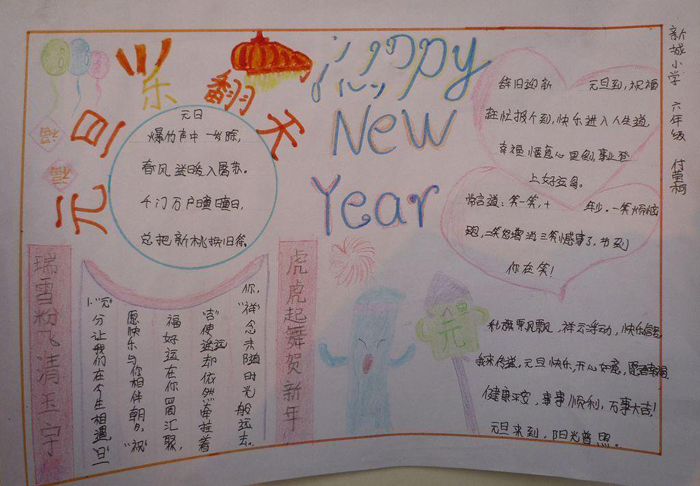 元旦乐翻天
Happy
New
Year
元日
爆竹声中一岁除,
春风送暖入屠苏。
千门万户曈曈日,
总把新桃换旧符。
辞旧迎新 元旦到,祝福
赶忙报个到,快乐进入人生道,
幸福惬意心里刻,事业登
上好运身。
常言道:笑一笑,十 年少,一笑烦恼
跑,二笑怒憎消三笑憾事了,节到
你在笑!
新城小学 六年级
瑞雪粉飞清玉宇
虎虎起舞贺新年
你,"祥"念夹随时光般远去。
"吉"使遥远却依然牵挂着
福好运在你四周汇聚,
愿快乐与你相伴朝夕,"祝"
分让我们在今生相遇,"旦"
小"元"
福
福
元
祥云浮动,快乐
元旦快乐,开心如意,
健康平安,事事顺利,万事大吉!
元旦来到,阳光普照。